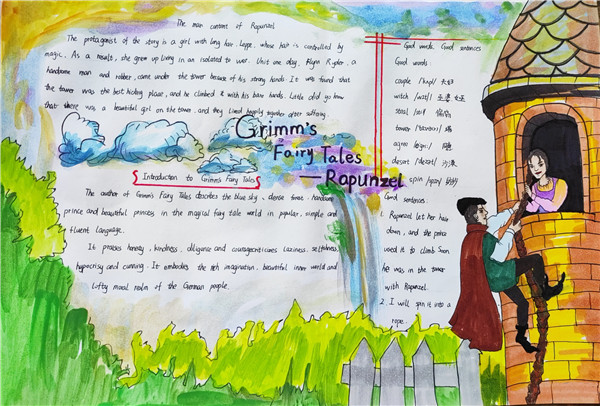 The main content of Rapunzel
The protagonist of the story is a girl with long hair. Leppe, whose hair is controlled by
magic. As a result, she grew up living in an isolated to wer. Until one day, Flynn Ryder, a
handsome man and robber, came under the tower because of his strong hands. It was found that
the tower was the best hiding place, and he climbed it with his bare hands. Little did go know
that there was a beautiful girl on the tower, and they lived happily together after suffering.
Grimm's
Fairy Tales
—Rapunzel
Introduction to Grimm's Fairy Tales
The author of Grimm's Fairy Tales describes the blue sky, dense forest, handsome
prince and beautiful princess in the magical fairy tale world in popular, simple and
fluent language.
It praises honesty, kindness, diligence and courage; criticizes laziness, selfishness,
hypocrisy and cunning. It embodies the rich imagination, beautiful inner world and
lofty moral realm of the German people.
Good words Good sentences
Good words
couple /ˈkʌpl/ 夫妇
witch /wɪtʃ/ 女巫
steal 偷
tower /ˈtaʊər/ 塔
agree /əˈɡriː/ 同意
desert /ˈdezərt/ 沙漠
spin /spɪn/
Good
sentences
1. Rapunzel let her hair
down, and the prince
used it to climb. Soon
he was in the tower
with Rapunzel.
2. I will spin it into a
rope.